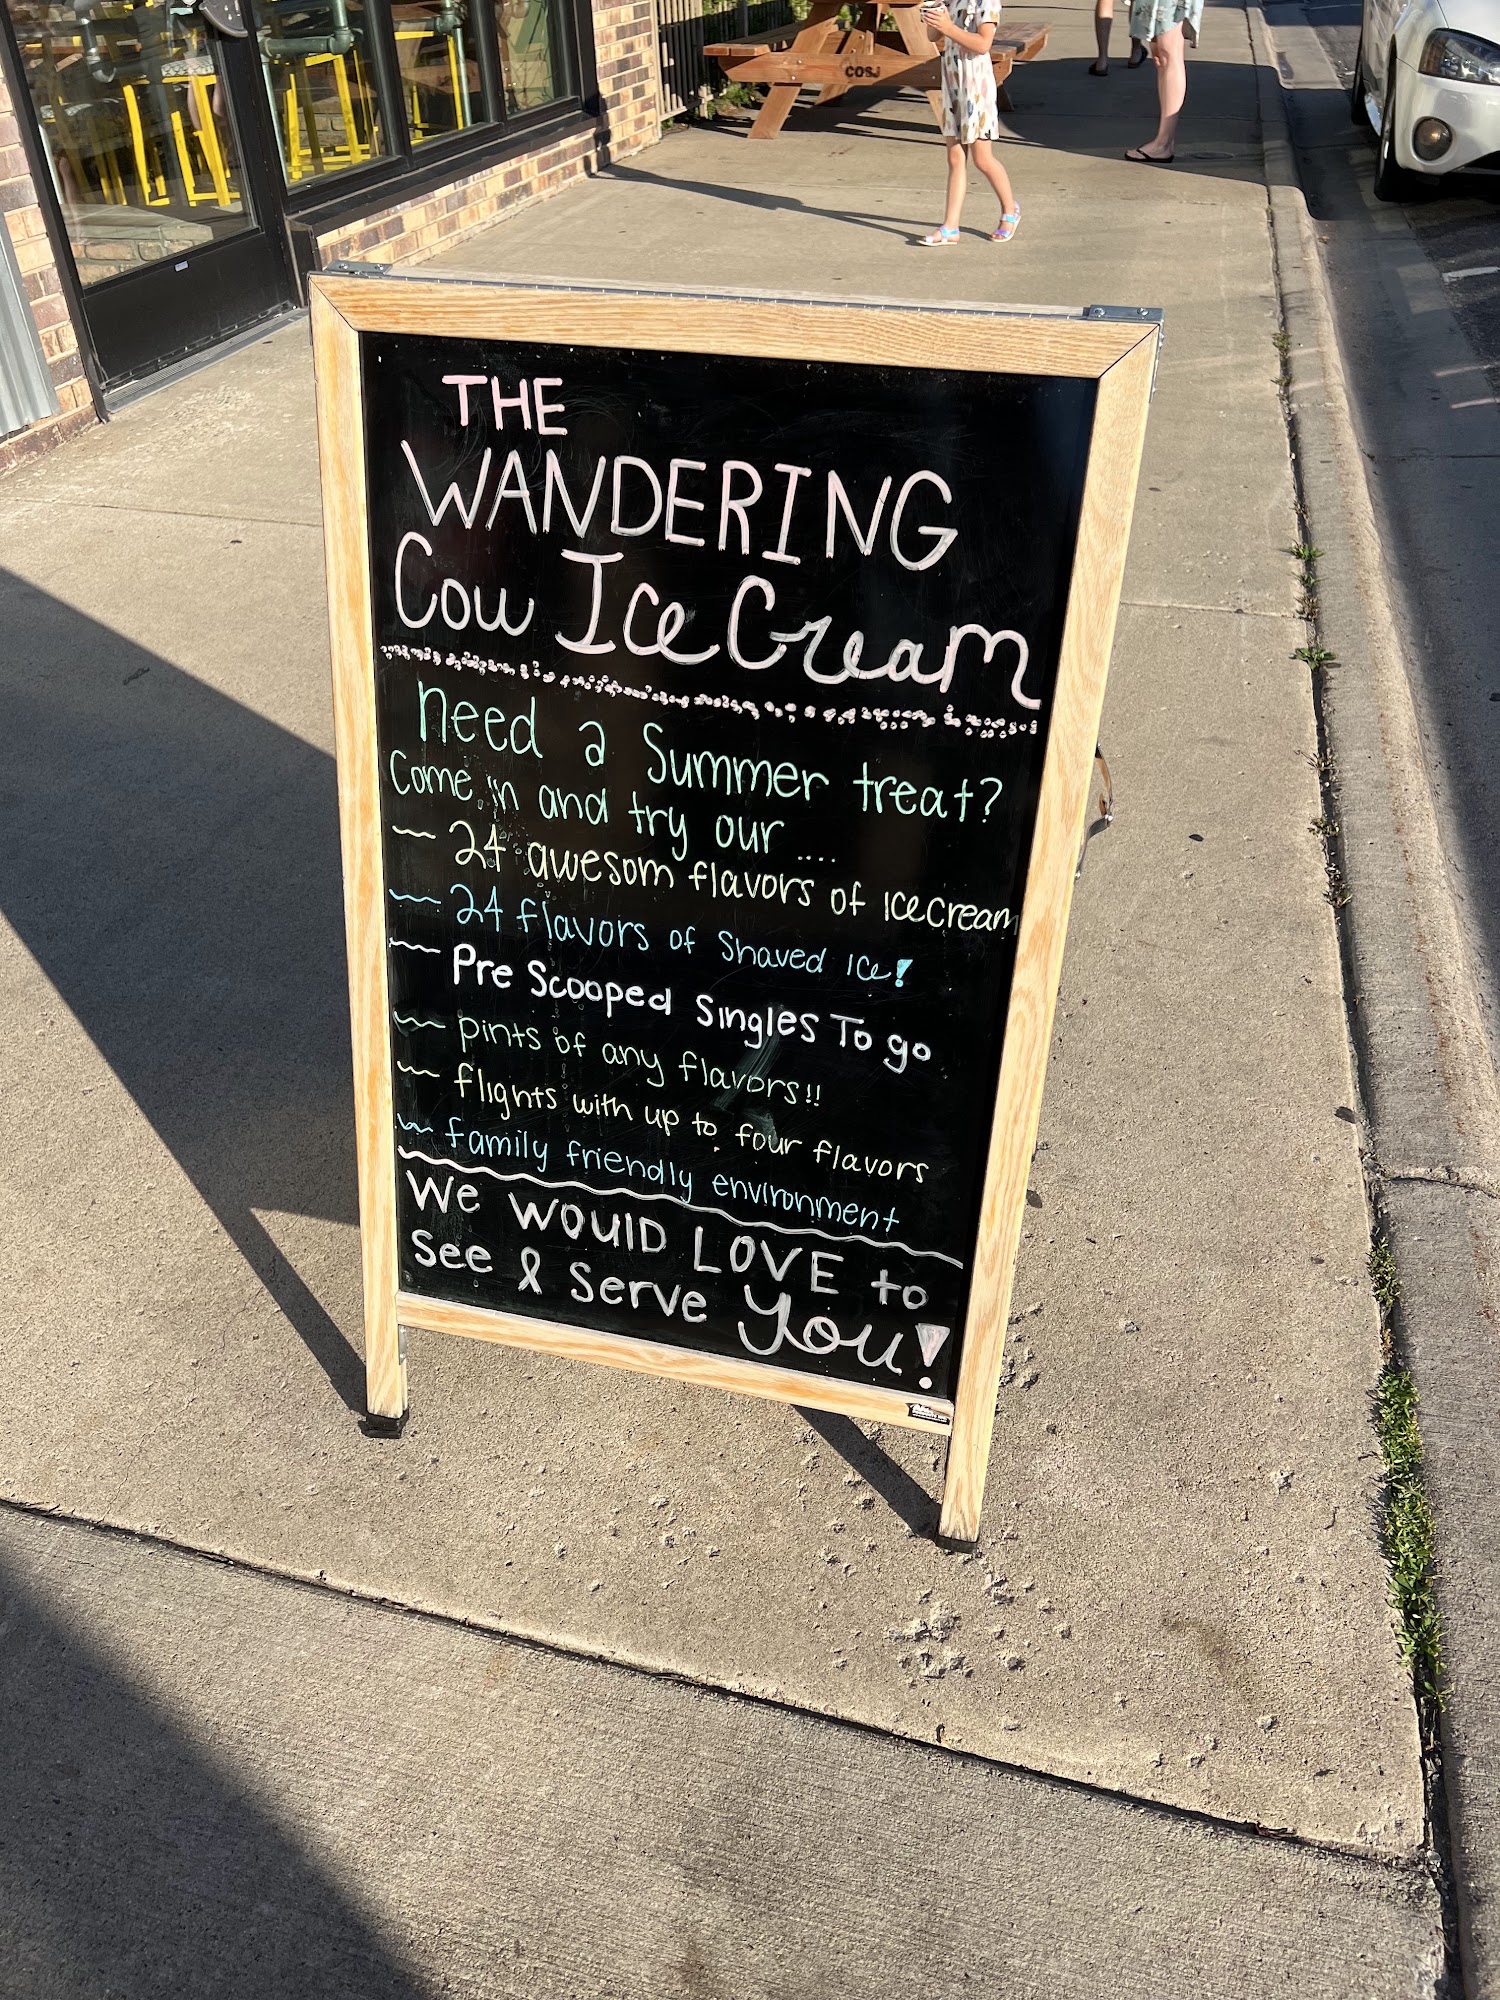 COSJ
THE
WANDERING
Cow Ice Cream
need a Summer treat?
Come in and try our ....
~ 24 awesom flavors of ice cream
~ 24 flavors of Shaved Ice!
~ Pre Scooped Singles To go
~ pints of any flavors!!
~ flights with up to four flavors
~ family friendly environment
We WOULD LOVE to
See & Serve you!